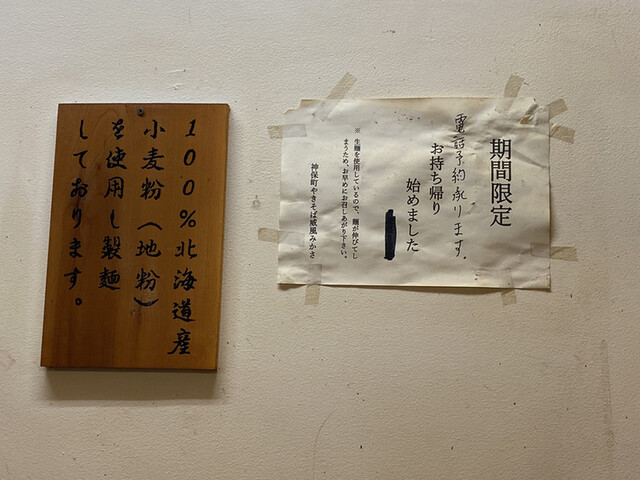 100%北海道産
小麦粉(地粉)
を使用し製麺
しております。
期間限定
電話予約承ります。
お持ち帰り
始めました
※ 生麺を使用しているので、麺が伸びてし
まうため、お早めにお召しあがり下さい。
神保町やきそば威風みかさ